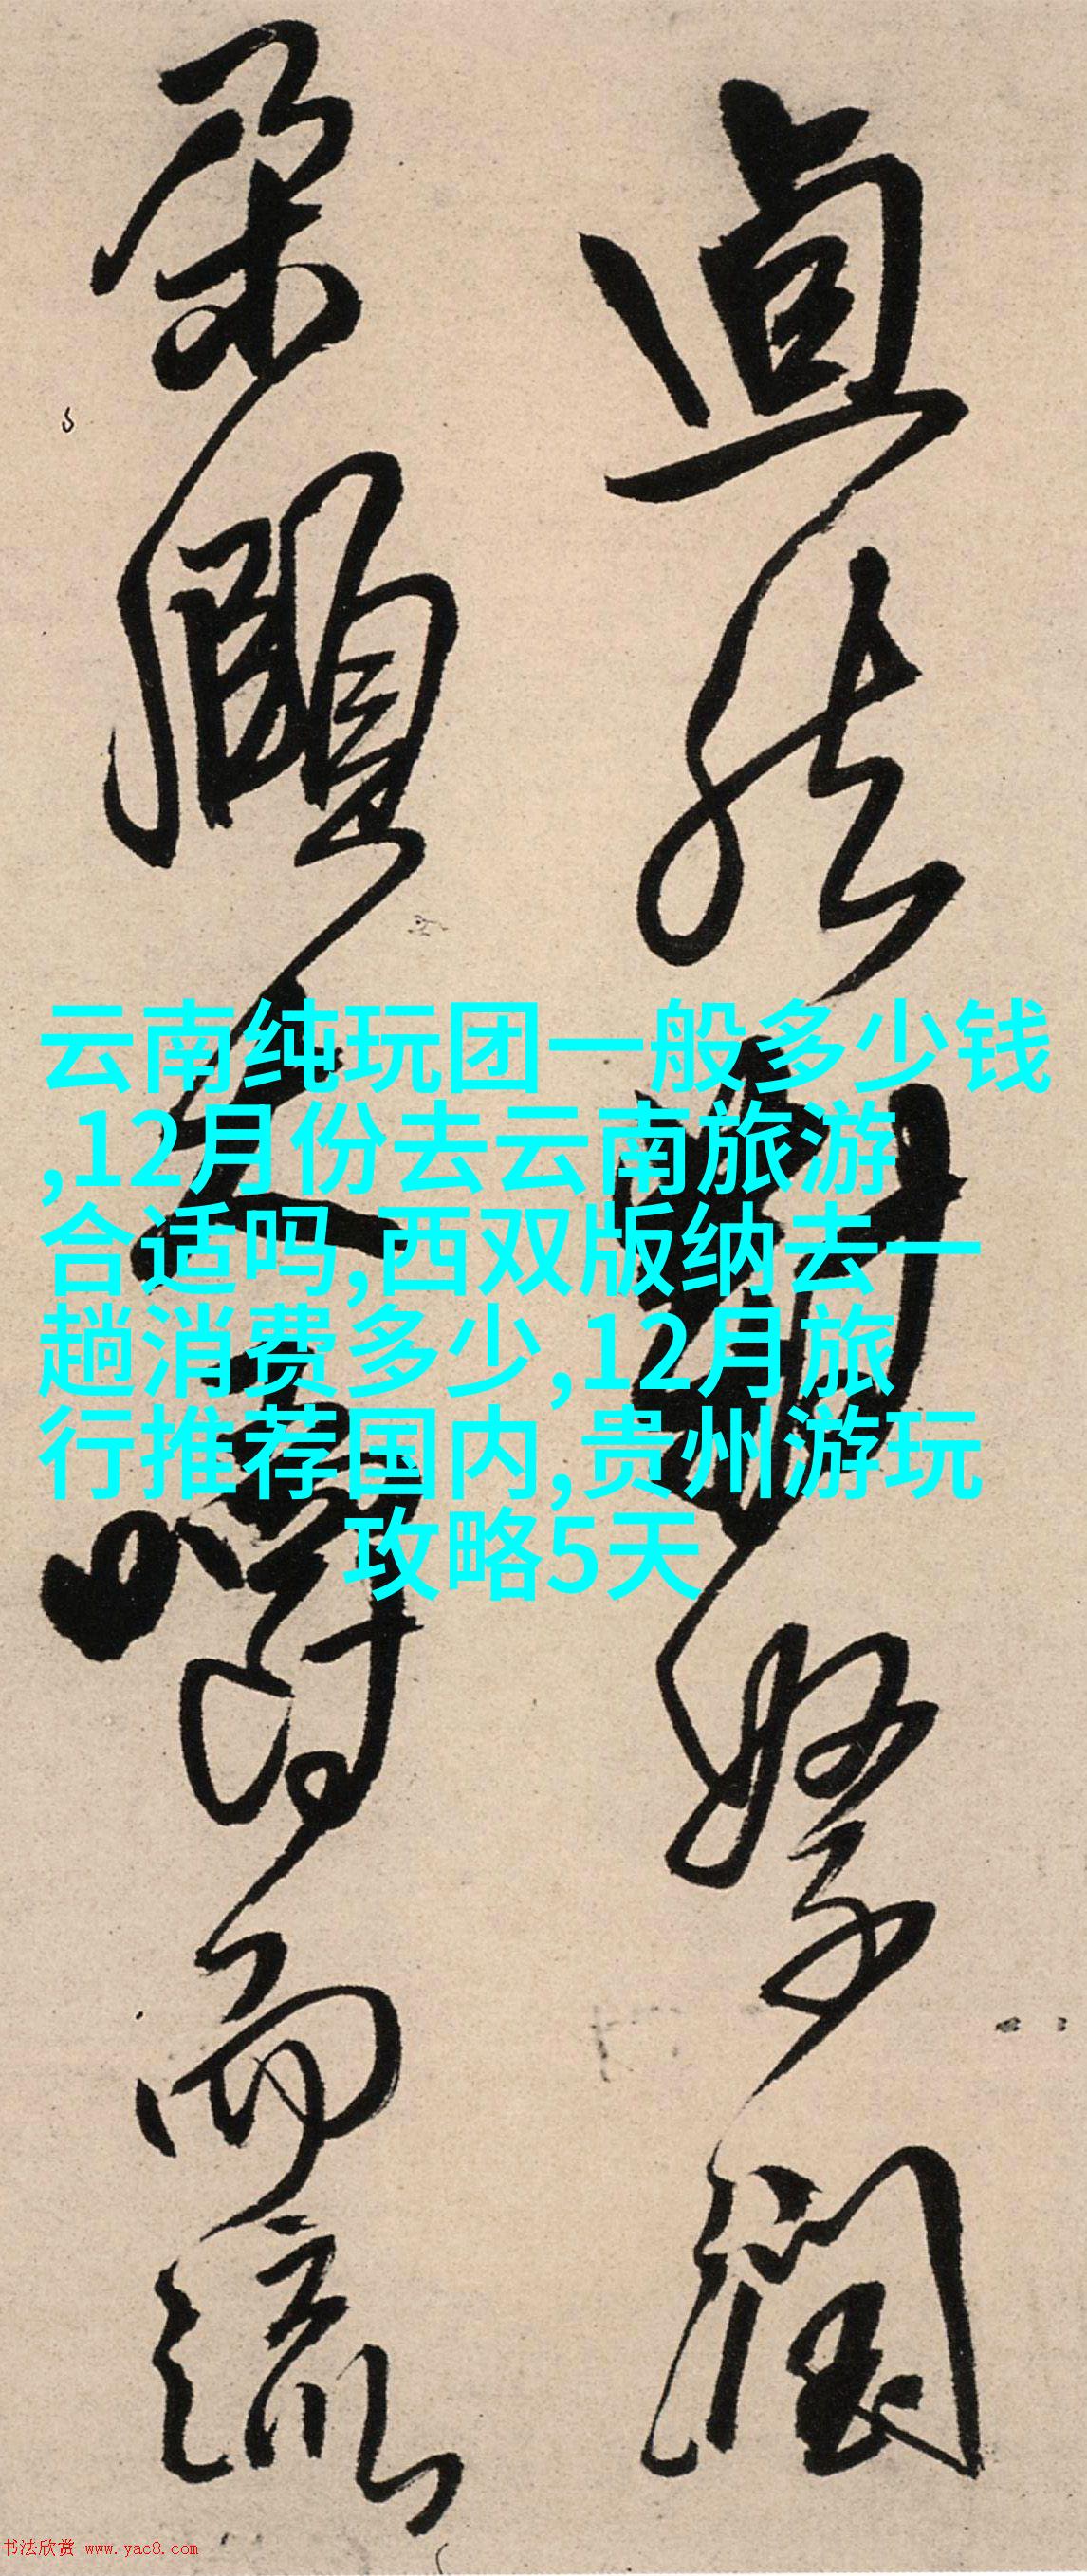 然 潤
朵頤大嚼而流
云南纯玩团一般多少钱
,12月份去云南旅游
合适吗,西双版纳去一
趟消费多少,12月旅
行推荐国内,贵州游玩
攻略5天
书法欣赏 www.yac8.com